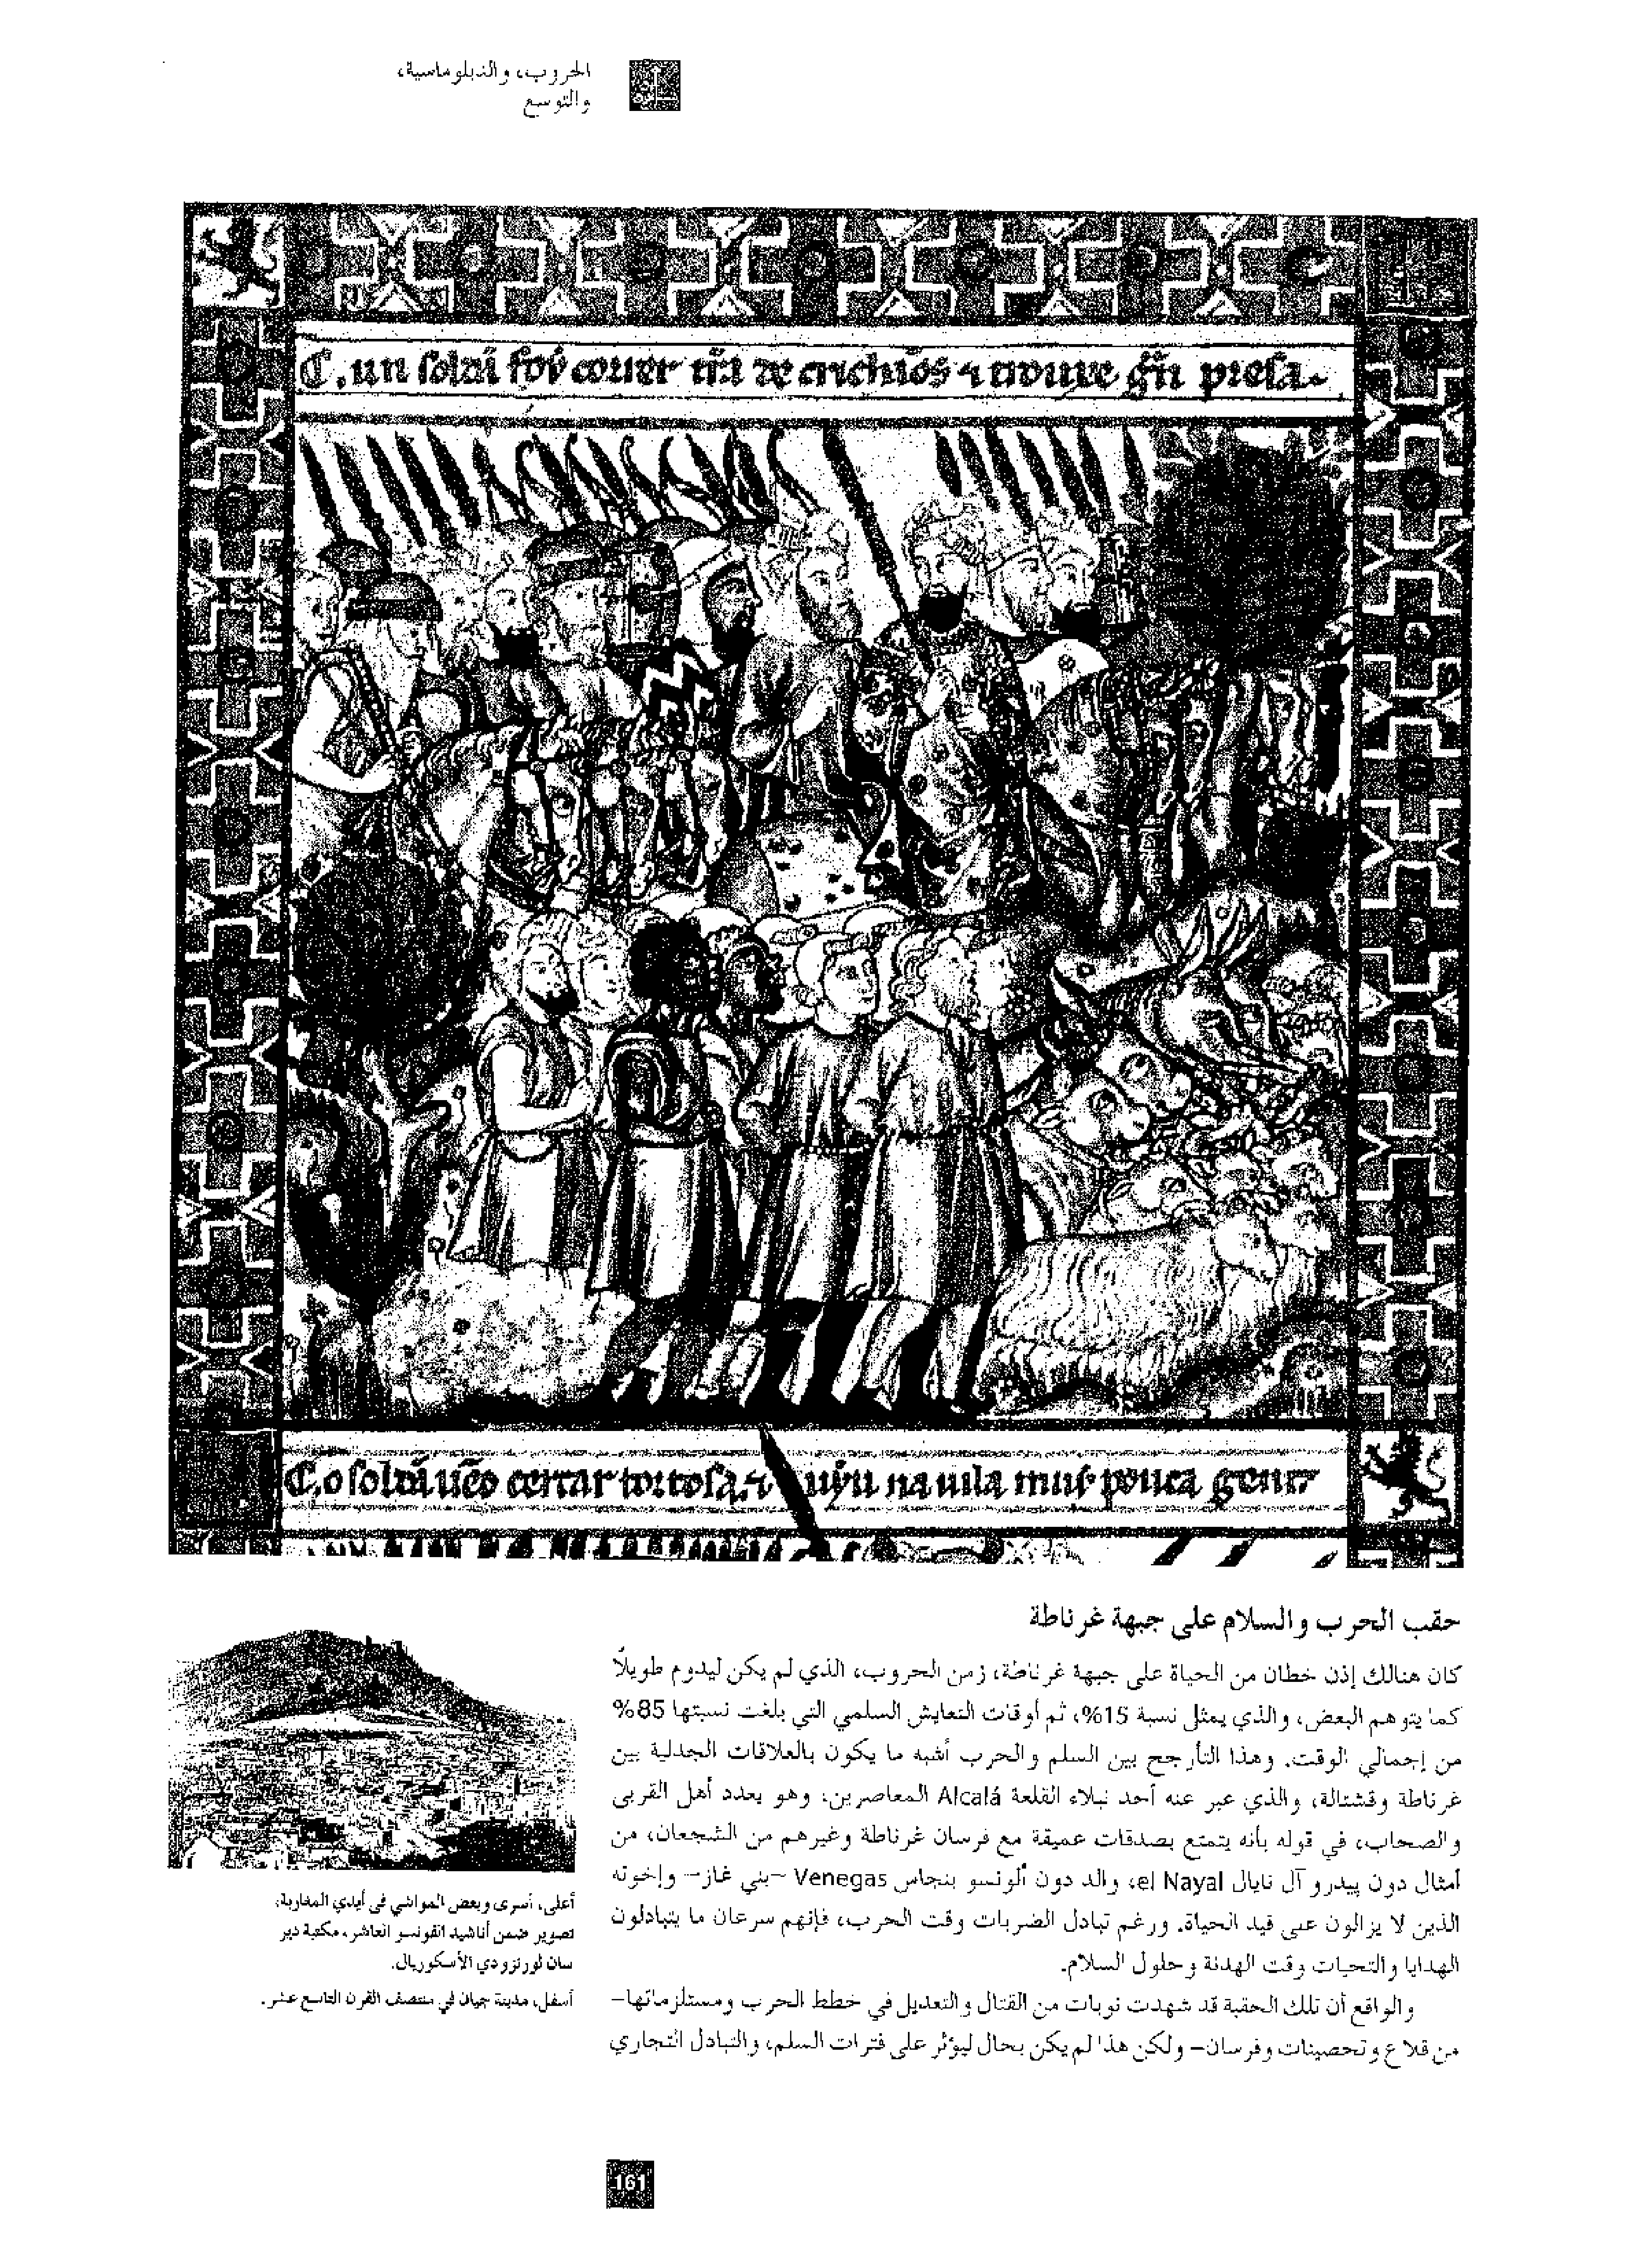 الحروب، والدبلوماسية،
والتوسع
C. un soldã foy correr tr̃a de crischãos ⁊ trouxe grã presa.
C. o soldã ueo cercar tortosa, ⁊ uyu na uila muy pouca gente
حقب الحرب والسلام على جبهة غرناطة
كان هنالك إذن خطان من الحياة على جبهة غرناطة، زمن الحروب، الذي لم يكن ليدوم طويلاً
كما يتوهم البعض، والذي يمثل نسبة 15%، ثم أوقات التعايش السلمي التي بلغت نسبتها 85%
من إجمالي الوقت. وهذا التأرجح بين السلم والحرب أشبه ما يكون بالعلاقات الجدلية بين
غرناطة وقشتالة، والذي عبر عنه أحد نبلاء القلعة Alcalá المعاصرين، وهو يعدد أهل القربى
والصحاب، في قوله بأنه يتمتع بصدقات عميقة مع فرسان غرناطة وغيرهم من الشجعان، من
أمثال دون پيدرو آل نايال el Nayal، والد دون ألونسو بنجاس Venegas -بني غاز- وإخوته
الذين لا يزالون على قيد الحياة. ورغم تبادل الضربات وقت الحرب، فإنهم سرعان ما يتبادلون
الهدايا والتحيات وقت الهدنة وحلول السلام.
والواقع أن تلك الحقبة قد شهدت نوبات من القتال والتعديل في خطط الحرب ومستلزماتها-
من قلاع وتحصينات وفرسان- ولكن هذا لم يكن بحال ليؤثر على فترات السلم، والتبادل التجاري
أعلى، أسرى وبعض المواشي في أيدي المغاربة،
تصوير ضمن أناشيد الفونسو العاشر، مكتبة دير
سان لورنزو دي الأسكوريال.
أسفل، مدينة جيان في منتصف القرن التاسع عشر.
161